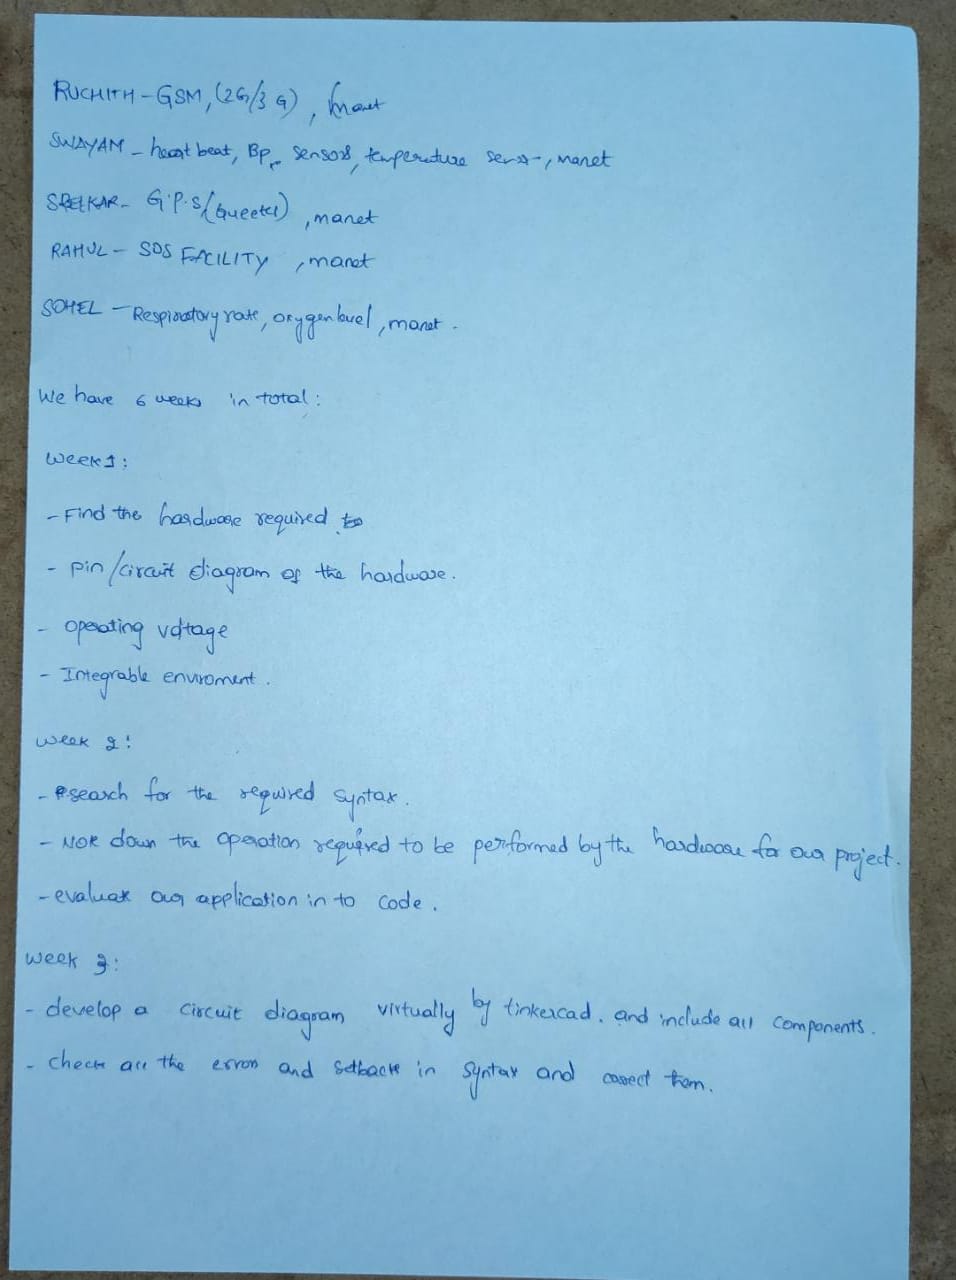 RUCHITH - GSM, (2G/3G), manet
SWAYAM - heart beat, Bp, sensors, temperature sensor, manet
G.P.S, manet
RAHUL - SOS FACILITY, manet
SOHEL - Respiratory rate, oxygen level, manet.
We have 6 weeks in total:
week 1:
- Find the hardware required
- pin/circuit diagram of the hardware.
- operating voltage
- Integrable enviroment.
week 2:
- search for the required syntax.
- Note down the operation required to be performed by the hardware for our project.
- evaluate our application in to code.
week 3:
- develop a circuit diagram virtually by tinkercad. and include all components.
- check all the errors and setback in syntax and correct them.